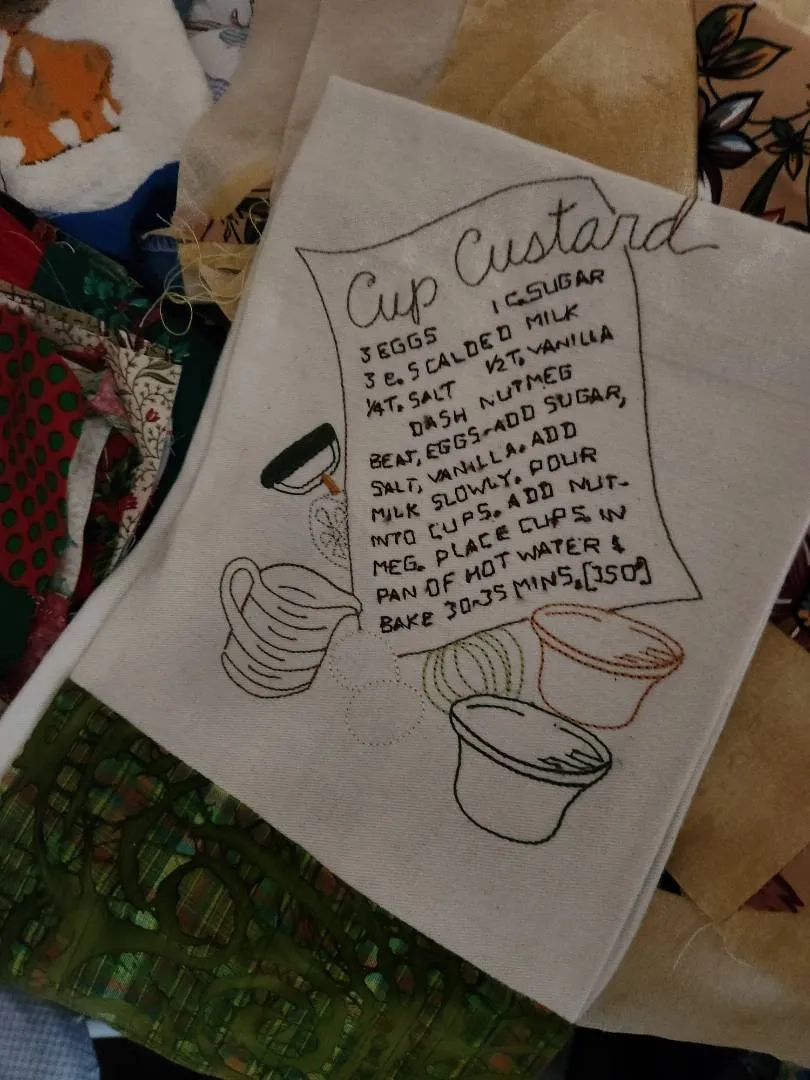 Cup Custard
3 EGGS 1 C. SUGAR
3 C. SCALDED MILK
1/4 T. SALT 1/2 T. VANILLA
DASH NUTMEG
BEAT, EGGS-ADD SUGAR,
SALT, VANILLA. ADD
MILK SLOWLY. POUR
INTO CUPS. ADD NUT-
MEG. PLACE CUPS IN
PAN OF HOT WATER &
BAKE 30-35 MINS. [350°]